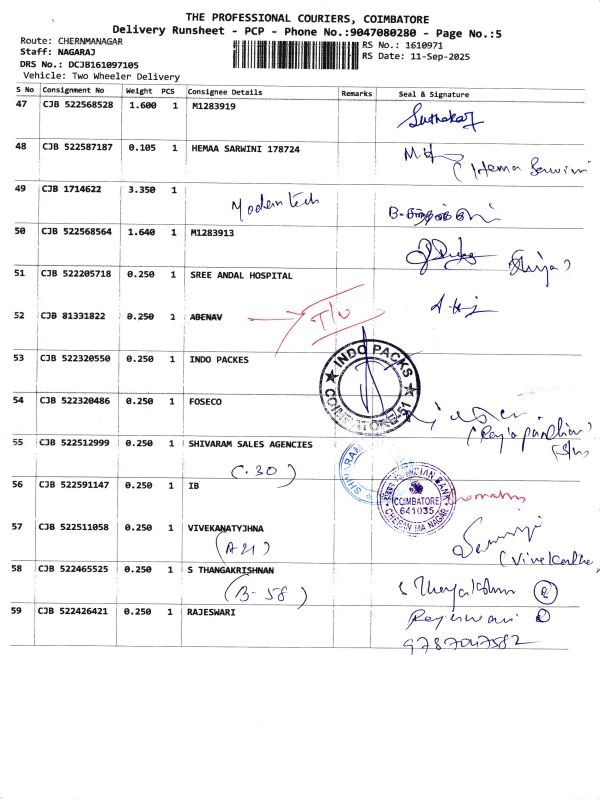 THE PROFESSIONAL COURIERS, COIMBATORE
Delivery Runsheet - PCP - Phone No.:9047080280 - Page No.:5
Route: CHERNMANAGAR
RS No.: 1610971
Staff: NAGARAJ
RS Date: 11-Sep-2025
DRS No.: DCJB161097105
Vehicle: Two Wheeler Delivery
S No Consignment No Weight PCS Consignee Details Remarks Seal & Signature
47 CJB 522568528 1.600 1 M1283919
48 CJB 522587187 0.105 1 HEMAA SARWINI 178724
(Hema Sarwini
49 CJB 1714622 3.350 1
Modern tech
50 CJB 522568564 1.640 1 M1283913
51 CJB 522205718 0.250 1 SREE ANDAL HOSPITAL
52 CJB 81331822 0.250 1 ABENAV
T/U
53 CJB 522320550 0.250 1 INDO PACKES
INDO PACKS
COIMBATORE-51
54 CJB 522320486 0.250 1 FOSECO
55 CJB 522512999 0.250 1 SHIVARAM SALES AGENCIES
(C.30)
SHIVARAM
56 CJB 522591147 0.250 1 IB
INDIAN BANK
COIMBATORE
641035
CHERAN MA NAGAR
57 CJB 522511058 0.250 1 VIVEKANATYJHNA
(A21)
58 CJB 522465525 0.250 1 S THANGAKRISHNAN
(B-58)
59 CJB 522426421 0.250 1 RAJESWARI
Rajeswari
9787047582